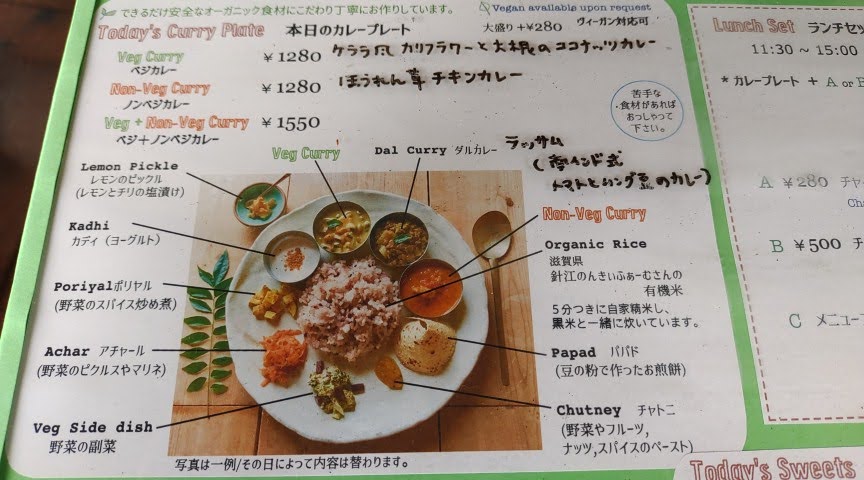 できるだけ安全なオーガニック食材にこだわり丁寧にお作りしています。
Vegan available upon request
Today's Curry Plate 本日のカレープレート 大盛り+¥280 ヴィーガン対応可
Veg Curry ¥1280 ケララ風 カリフラワーと大根のココナッツカレー
ベジカレー
Non-Veg Curry ¥1280 ほうれん草チキンカレー
ノンベジカレー
Veg + Non-Veg Curry ¥1550
ベジ+ノンベジカレー
苦手な
食材があれば
おっしゃって
下さい。
Lemon Pickle
レモンのピックル
(レモンとチリの塩漬け)
Veg Curry
Dal Curry ダルカレー ラッサム
(南インド式
トマトとムング豆のカレー)
Kadhi
カディ(ヨーグルト)
Poriyal ポリヤル
(野菜のスパイス炒め煮)
Achar アチャール
(野菜のピクルスやマリネ)
Veg Side dish
野菜の副菜
Non-Veg Curry
Organic Rice
滋賀県
針江のんきぃふぁーむさんの
有機米
5分つきに自家精米し、
黒米と一緒に炊いています。
Papad パパド
(豆の粉で作ったお煎餅)
Chutney チャトニ
(野菜やフルーツ,
ナッツ,スパイスのペースト)
写真は一例/その日によって内容は替わります。
Lunch Set ランチセッ
11:30 ~ 15:00
* カレープレート + A or B
A ¥280 チャ
Cha
B ¥500 チ
C メニュー
Today's Sweets